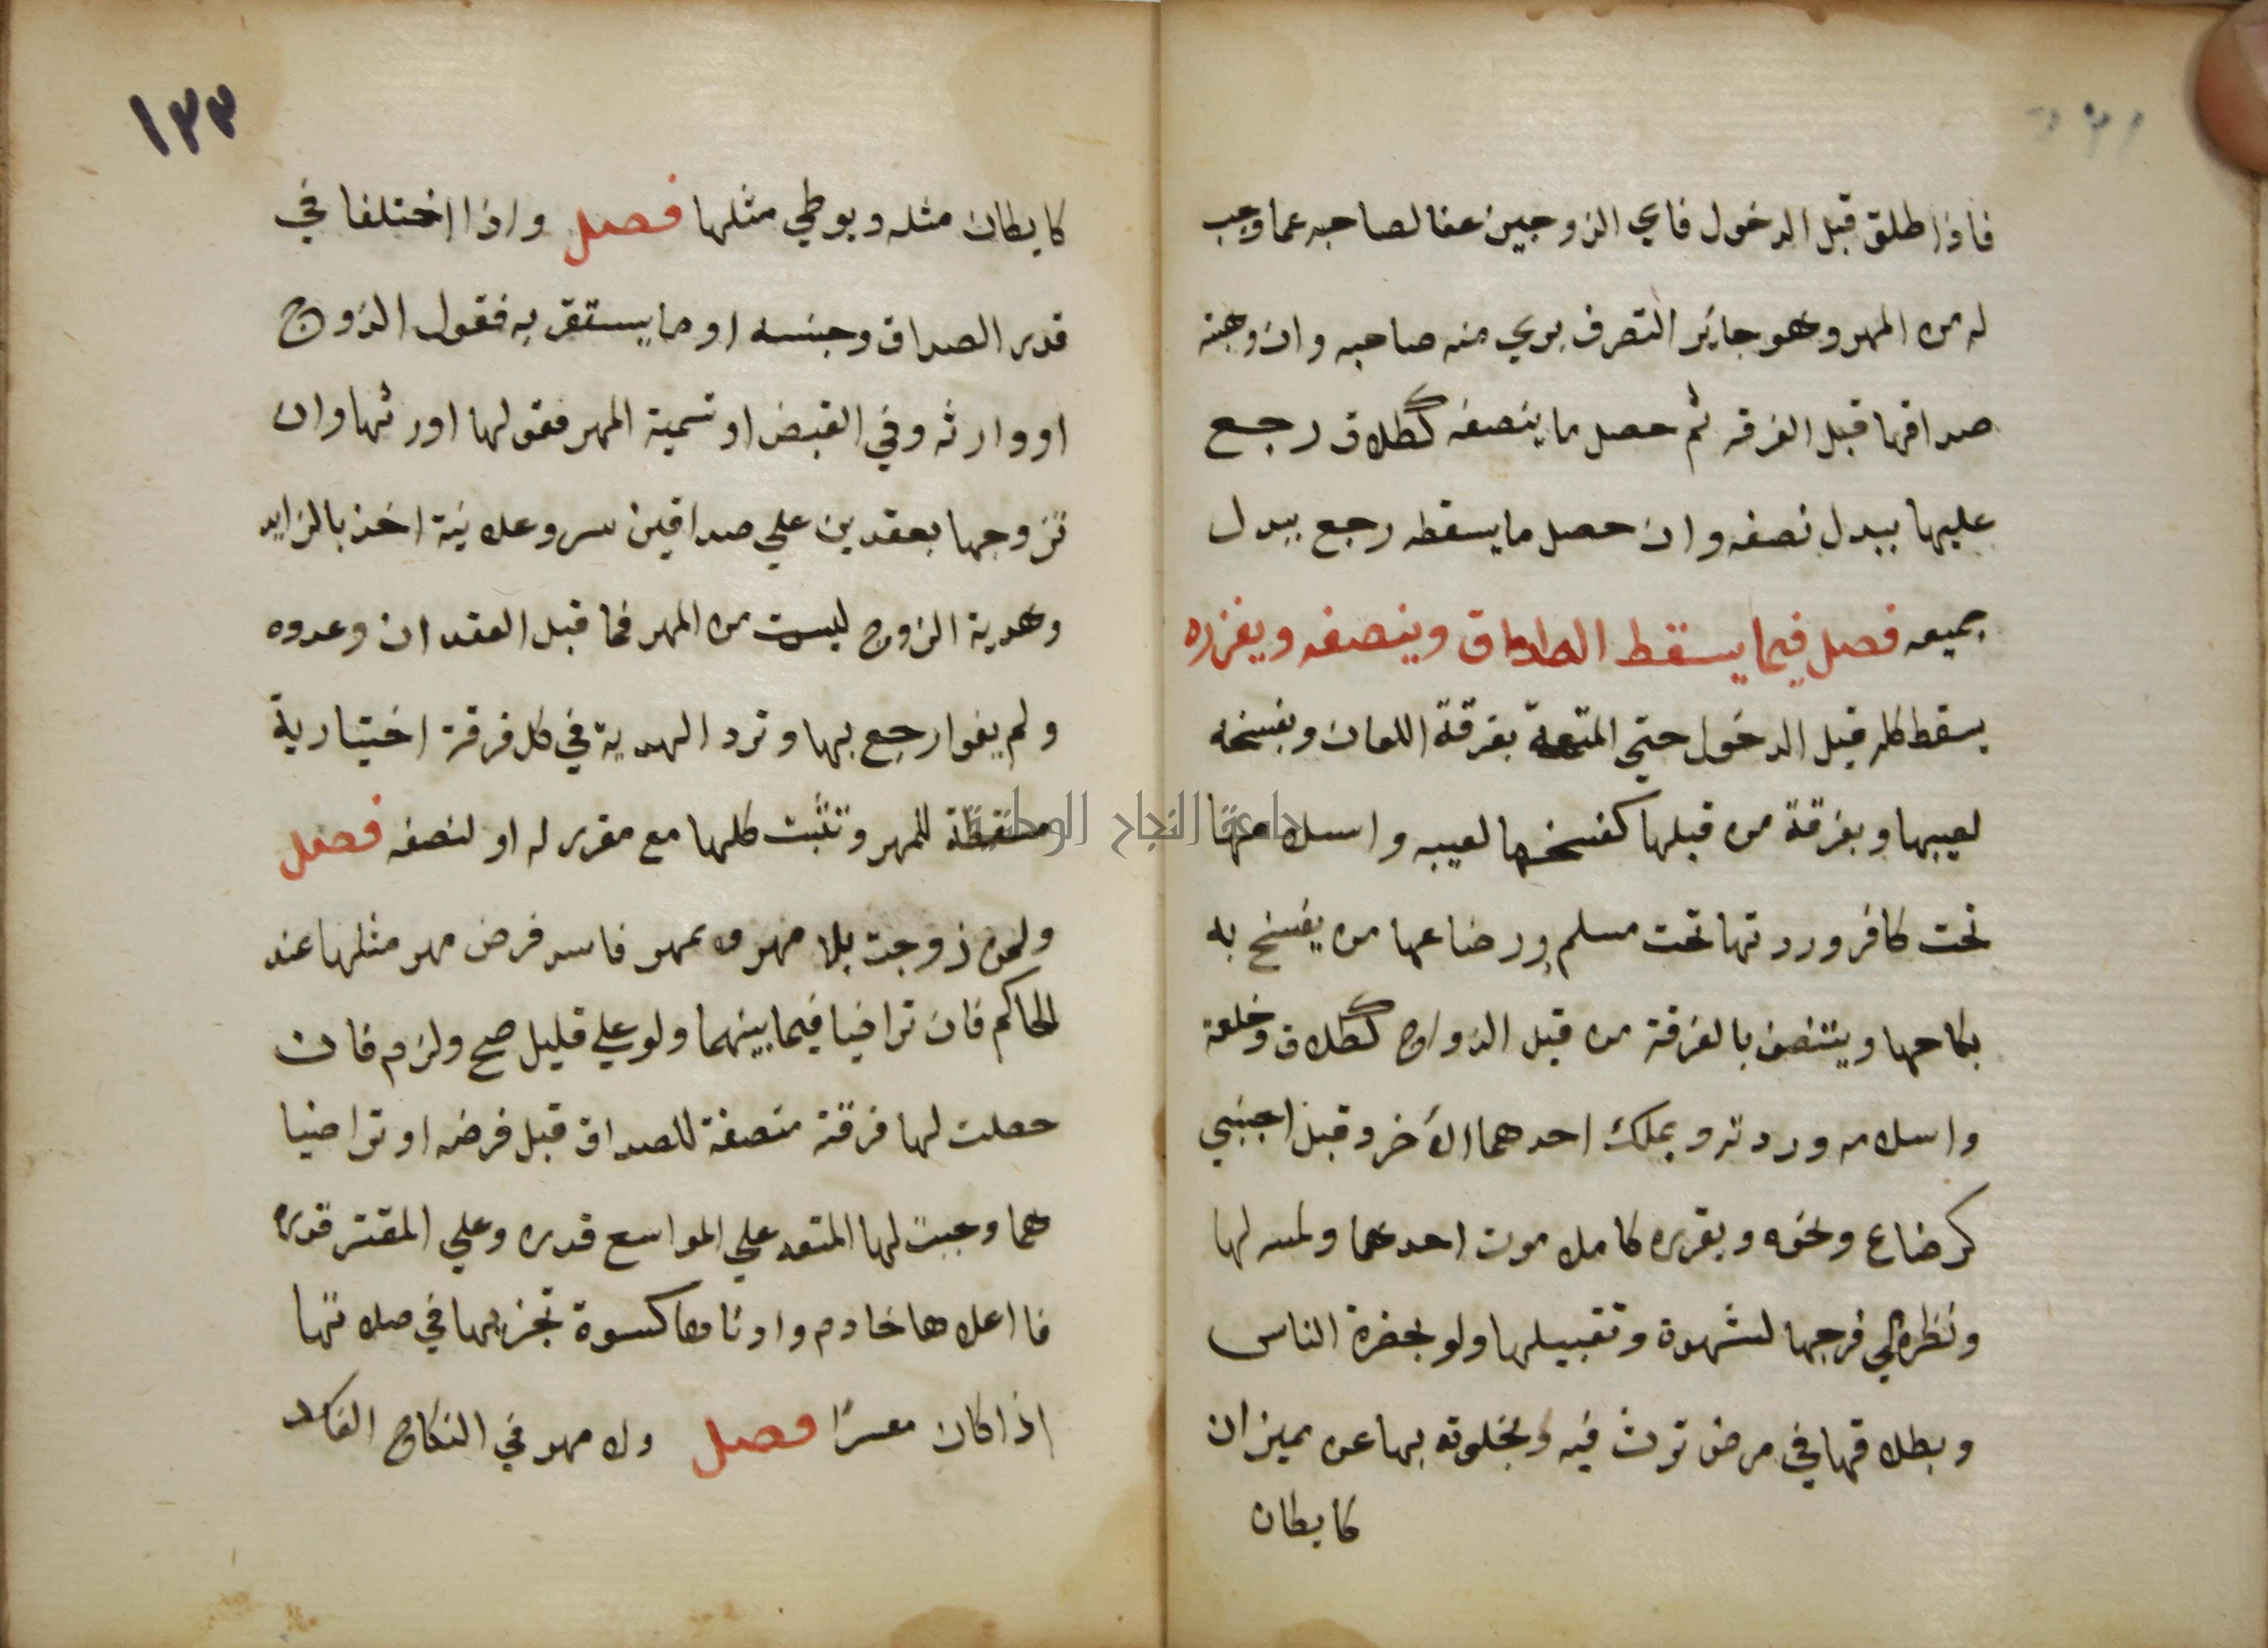 فاذا طلق قبل الدخول فاي الزوجين عفا لصاحبه عما وجب
له من المهر وهو جايز التصرف بري منه صاحبه وان وهبته
صداقها قبل الفرقه ثم حصل ما ينصفه كطلاق رجع
عليها ببدل نصفه وان حصل ما يسقطه رجع ببدل
جميعه فصل فيما يسقط الصداق وينصفه ويقرره
يسقط كله قبل الدخول حتي المتعة بفرقة اللعان وبفسخه
لعيبها وبفرقة من قبلها كفسخها لعيبه واسلامها
تحت كافر وردتها تحت مسلم ورضاعها من يفسخ به
نكاحها ويتنصف بالفرقة من قبل الزواج كطلاق وخلعه
واسلامه وردته وبملك احدهما الآخر وقبل اجنبي
كرضاع ونحوه ويقرره كاملا موت احدهما ولمسه لها
ونظره الي فرجها لشهوة وتقبيلها ولو بحضرة الناس
وبطلاقها في مرض ترث فيه وبخلوته بها عن مميز ان
كا يطان
١٣٣
كا يطان مثله ويوطي مثلها فصل واذا اختلفا في
قدر الصداق وجنسه او ما يستقر به فقول الزوج
او وارثه وفي القبض او تسمية المهر فقولها او رثها وان
تزوجها بعقدين علي صداقين سر وعلانية اخذ بالزايد
وهدية الزوج ليست من المهر فما قبل العقد ان وعدوه
ولم يفوا رجع بها وترد الهدية في كل فرقة اختيارية
مسقطة للمهر وتثبت كلها مع مقرر له او لنصفه فصل
ولمن زوجت بلا مهر او بمهر فاسد فرض مهر مثلها عند
الحاكم فان تراضيا فيما بينهما ولو علي قليل صح ولزم فان
حصلت لها فرقة منصفة للصداق قبل فرضه او تراضيا
هما وجبت لها المتعه علي المواسع قدره وعلي المقتر قدره
فا اعلاها خادم وادناها كسوة تجزيها في صلاتها
اذا كان معسرًا فصل ولا مهر في النكاح الفاسد
جامعة النجاح الوطنية